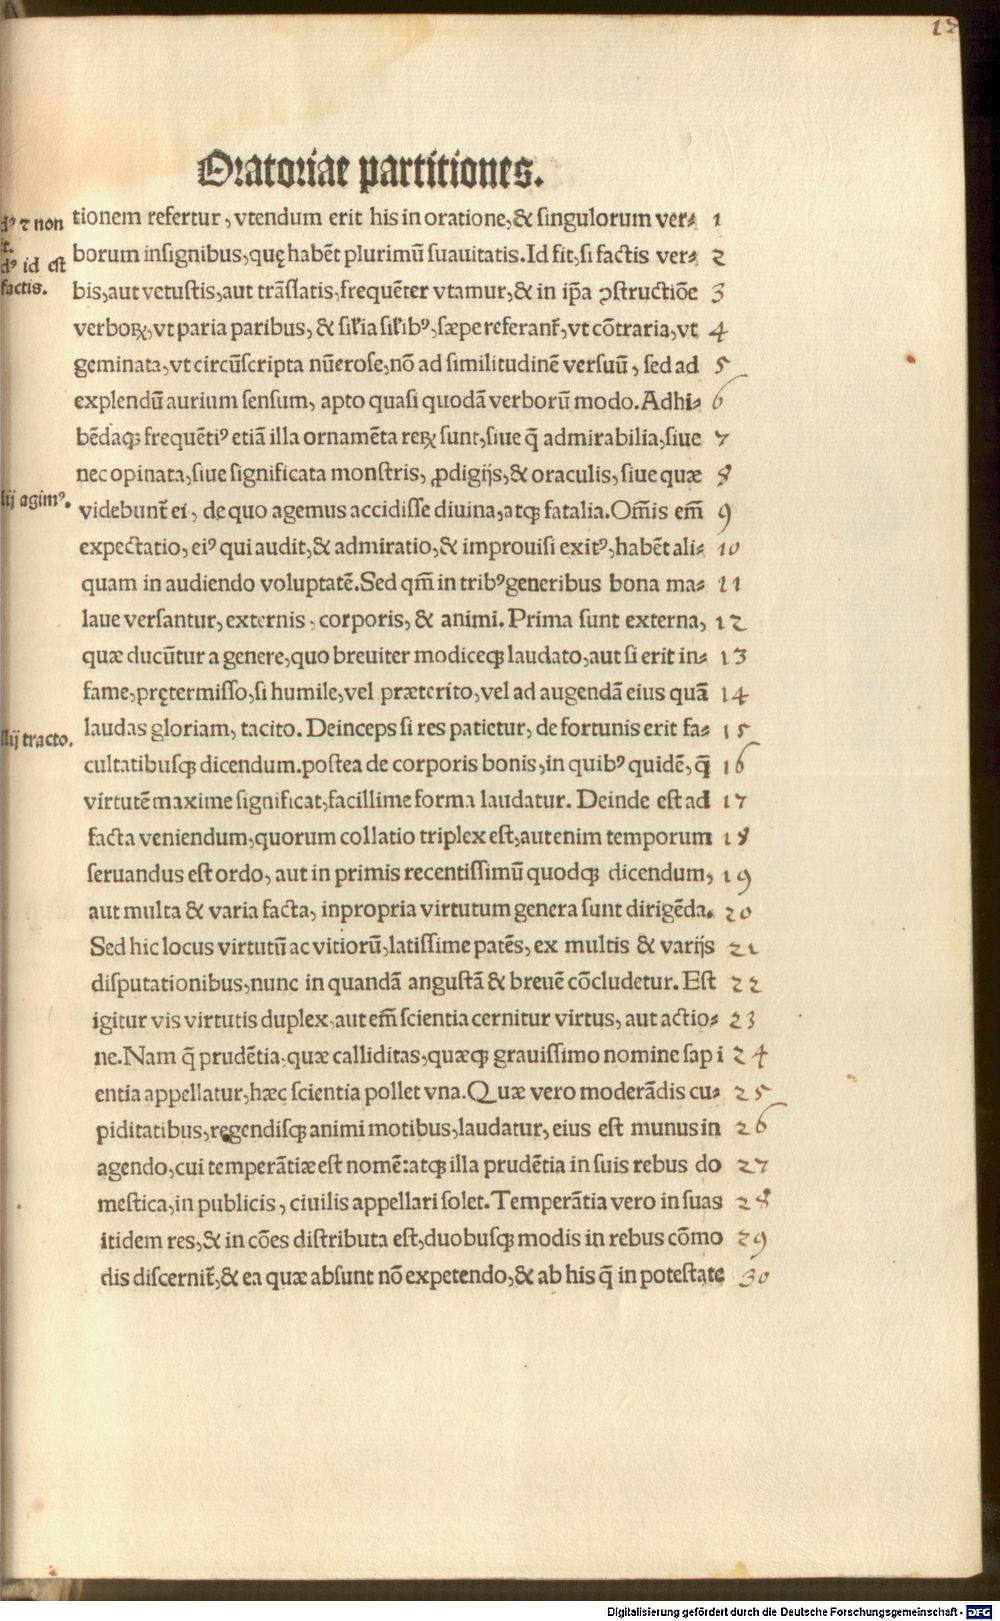 Oratoriae partitiones.
tionem refertur, vtendum erit his in oratione, & singulorum ver⸗ 1
borum insignibus, quę habēt plurimū suauitatis. Id fit, si factis ver⸗ 2
bis, aut vetustis, aut trāslatis, frequēter vtamur, & in ip̄a ꝯstructiōe 3
verboꝝ, vt paria paribus, & sil'ia sil'ibꝰ, sæpe referant̄, vt cōtraria, vt 4
geminata, vt circūscripta nūerose, nō ad similitudinē versuū, sed ad 5
explendū aurium sensum, apto quasi quodā verborū modo. Adhi⸗ 6
bēdaqꝫ frequētiꝰ etiā illa ornamēta reꝝ sunt, siue q̄ admirabilia, siue 7
nec opinata, siue significata monstris, ꝓdigijs, & oraculis, siue quæ 8
videbunt̄ ei, de quo agemus accidisse diuina, atqꝫ fatalia. Om̄is em̄ 9
expectatio, eiꝰ qui audit, & admiratio, & improuisi exitꝰ, habēt ali⸗ 10
quam in audiendo voluptatē. Sed qm̄ in tribꝰ generibus bona ma⸗ 11
laue versantur, externis, corporis, & animi. Prima sunt externa, 12
quæ ducūtur a genere, quo breuiter modiceqꝫ laudato, aut si erit in⸗ 13
fame, prętermisso, si humile, vel præterito, vel ad augendā eius quā 14
laudas gloriam, tacito. Deinceps si res patietur, de fortunis erit fa⸗ 15
cultatibusqꝫ dicendum. postea de corporis bonis, in quibꝰ quidē, q̄ 16
virtutē maxime significat, facillime forma laudatur. Deinde est ad 17
facta veniendum, quorum collatio triplex est, aut enim temporum 18
seruandus est ordo, aut in primis recentissimū quodqꝫ dicendum, 19
aut multa & varia facta, in propria virtutum genera sunt dirigēda. 20
Sed hic locus virtutū ac vitiorū, latissime patēs, ex multis & varijs 21
disputationibus, nunc in quandā angustā & breuē cōcludetur. Est 22
igitur vis virtutis duplex, aut em̄ scientia cernitur virtus, aut actio⸗ 23
ne. Nam q̄ prudētia, quæ calliditas, quæqꝫ grauissimo nomine sapi 24
entia appellatur, hæc scientia pollet vna. Quæ vero moderādis cu⸗ 25
piditatibus, regendisqꝫ animi motibus, laudatur, eius est munus in 26
agendo, cui temperātiæ est nomē: atqꝫ illa prudētia in suis rebus do 27
mestica, in publicis, ciuilis appellari solet. Temperātia vero in suas 28
itidem res, & in cōes distributa est, duobusqꝫ modis in rebus cōmo 29
dis discernit̄, & ea quæ absunt nō expetendo, & ab his q̄ in potestate 30
dꝰ ⁊ non
t.
dꝰ id est
factis.
lij agimꝰ.
lij tracto.
Digitalisierung gefördert durch die Deutsche Forschungsgemeinschaft - DFG